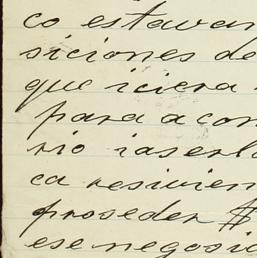 co estavan
siciones de
que iciera
para a con
rio iaserlo
ca resivien
proseder $
ese negosio